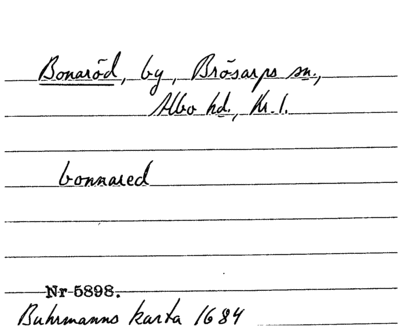 Bonaröd, by, Brösarps sn.,
Albo hd., Kr. l.
bonnared
Nr 5898.
Buhrmanns karta 1684